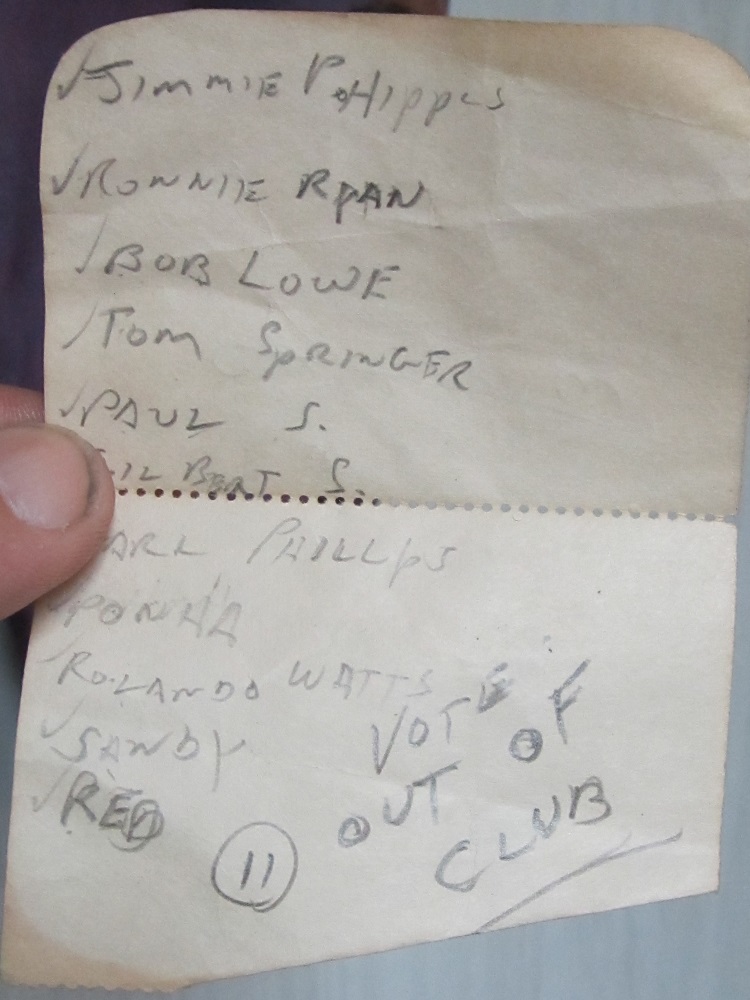 ✓JIMMIE PHIPPLS
✓RONNIE RYAN
✓BOB LOWE
✓TOM SPRINGER
✓PAUL S.
BERT S.
PHILLPS
✓ROLANDO WATTS
✓SANDY
✓RED
VOTE OF
OUT
CLUB
11